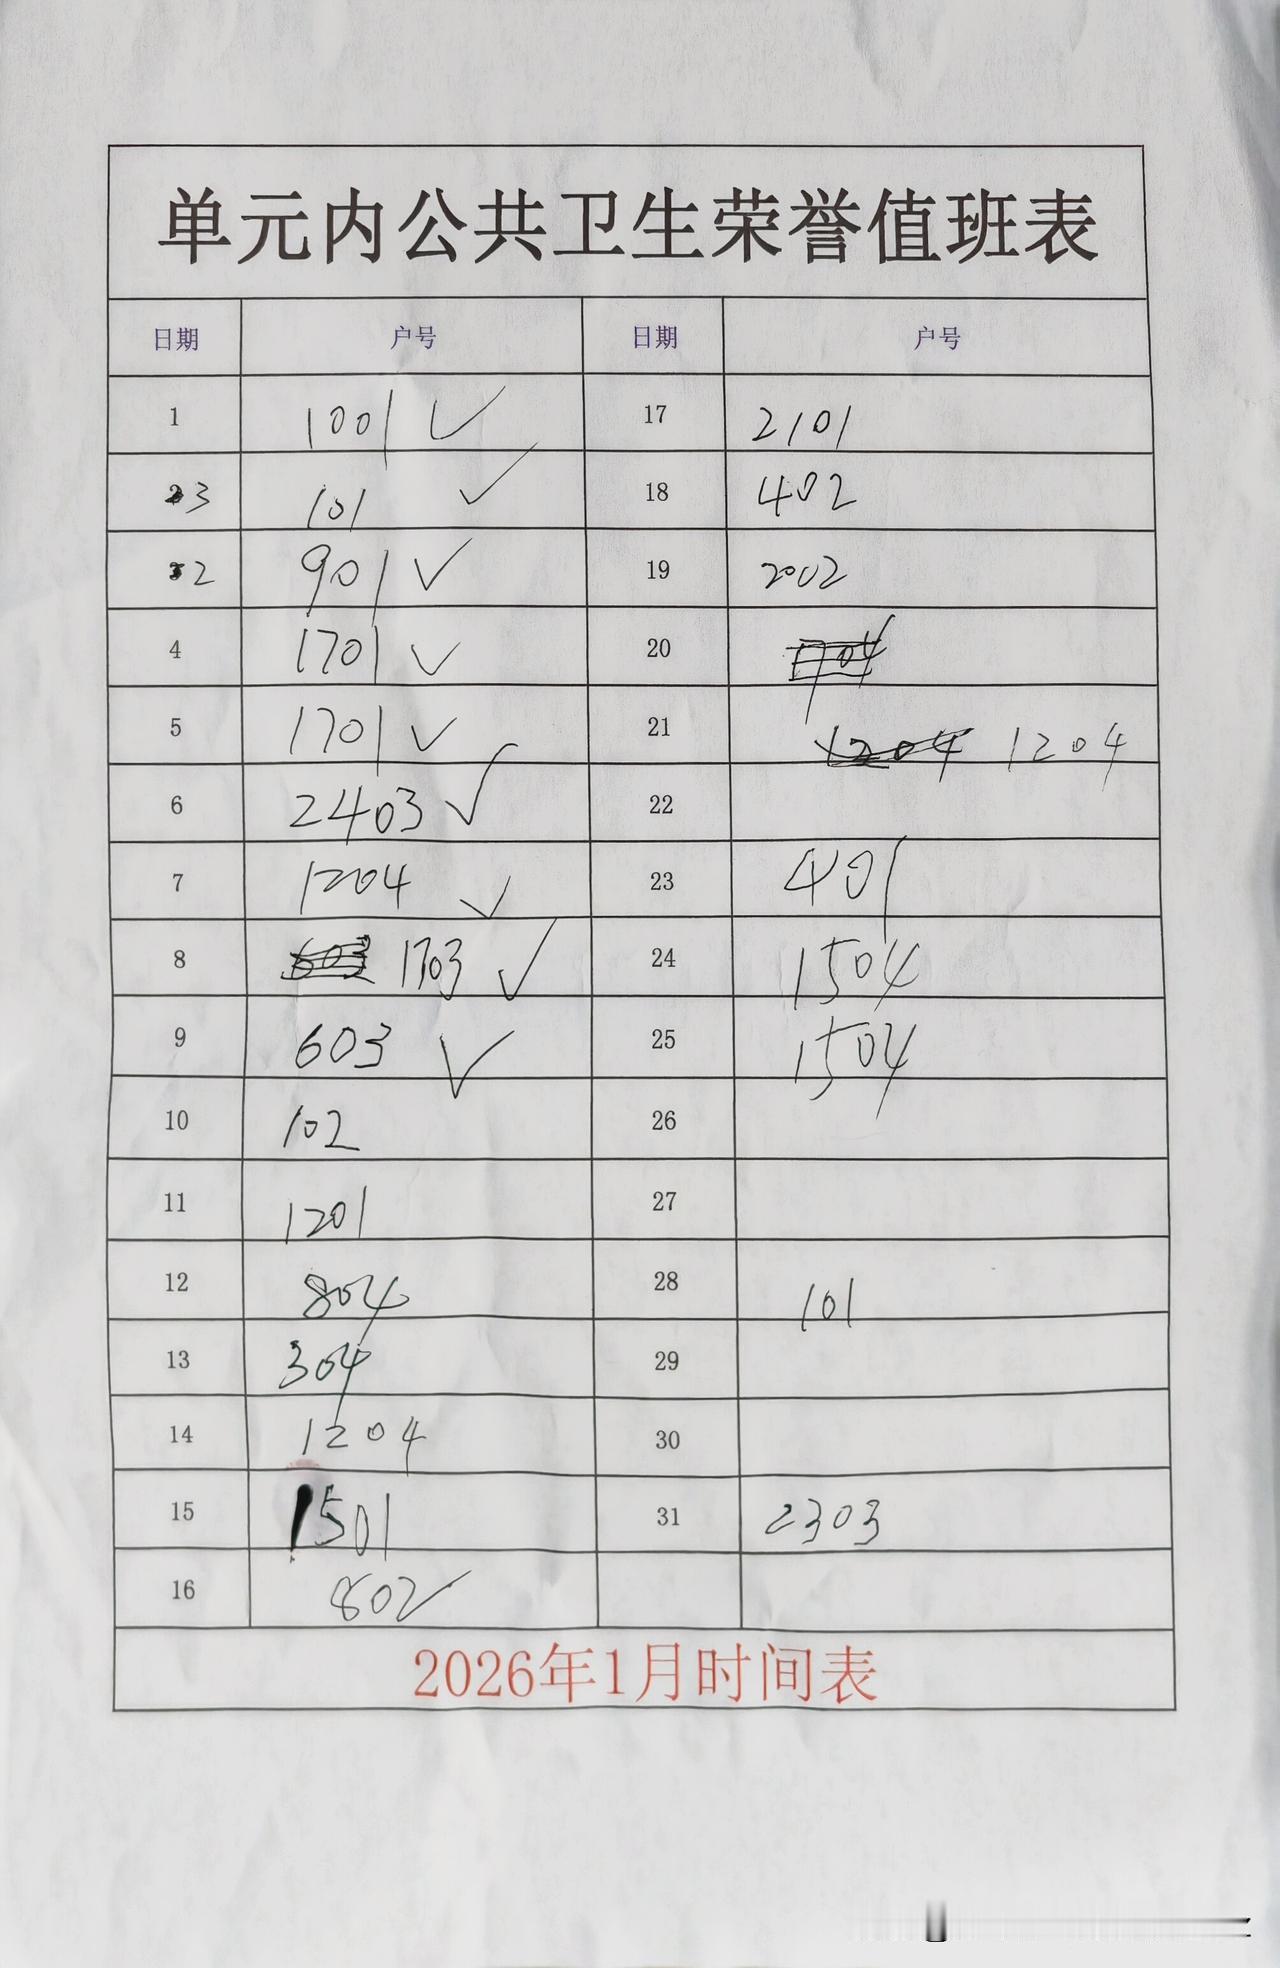 单元内公共卫生荣誉值班表
日期 户号 日期 户号
1 1001 ✓ 17 2101
3 101 ✓ 18 402
2 901 ✓ 19 2002
4 1701 ✓ 20
5 1701 ✓ 21 1204 1204
6 2403 ✓ 22
7 1204 ✓ 23 401
8 603 1703 ✓ 24 1504
9 603 ✓ 25 1504
10 102 26
11 1201 27
12 804 28 101
13 304 29
14 1204 30
15 1501 31 2303
16 802
2026年1月时间表